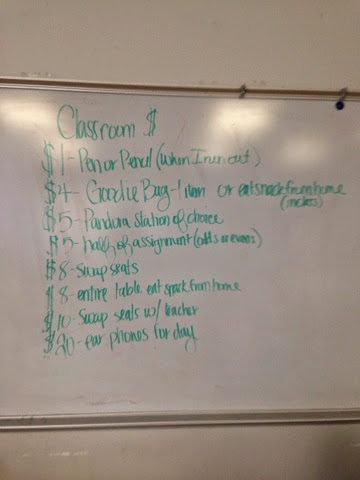 Classroom $
$1- Pen or Pencil (when I run out)
$4- Goodie Bag-1 item or eat snack from home
(in class)
$5- Pandora station of choice
$5- half of assignment (odds or evens)
$8- swap seats
$8- entire table eat snack from home
$10- Swap seats w/ teacher
$20- ear phones for day